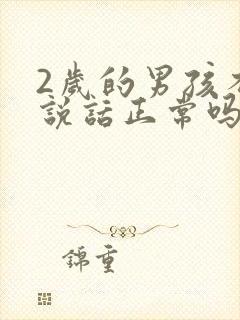 2歲的男孩不
說話正常嗎
錦重